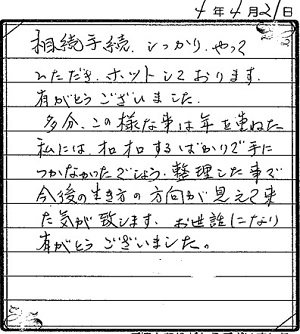 4年4月21日
相続手続、しっかり、やって
いただき、ホットしております。
有がとうございました。
多分、この様な事は年を重ねた
私には、オロオロするばかりで手に
つかなかったでしょう。整理した事で
今後の生き方の方向が見えて来
た気が致します。お世話になり
有がとうございました。